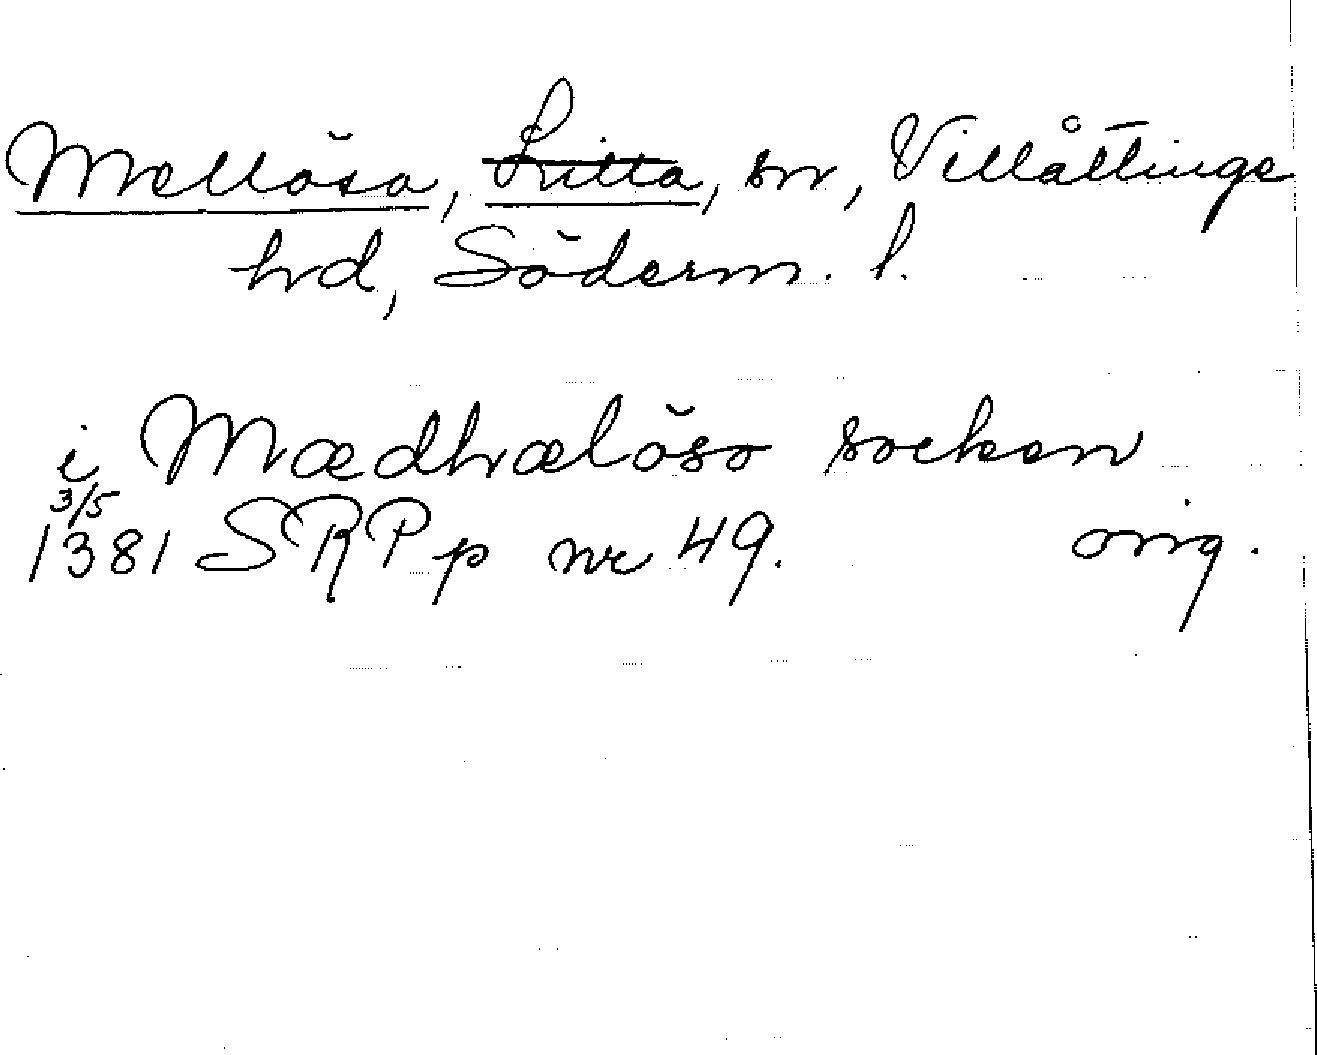 Mellösa, Lilla, sn, Villåttinge
hd, Söderm. l.
i Mædhælöso soken
3/5
1381 SRPp nr 49. orig.